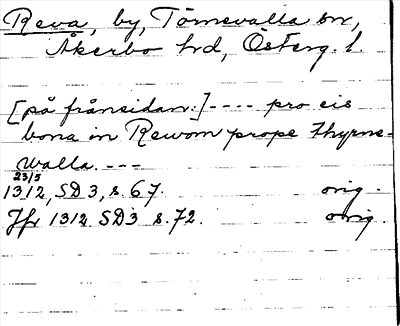 Reva, by, Törnevalla sn,
Åkerbo hd, Österg. l.
[på frånsidan:] ---- pro eis
bona in Rewom prope Thyrne-
walla. ---
23/5
1312, SD 3, s. 67. orig.
Jfr 1312 SD3 s. 72. orig.